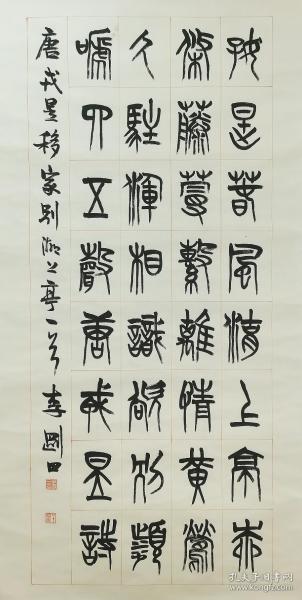 好是春風湖上亭柳
條藤蔓繫離情黃鶯
久駐渾相識欲別頻
嗁四五聲唐戎昱詩
唐戎昱移家別湖上亭一首 李剛田
孔夫子旧书网